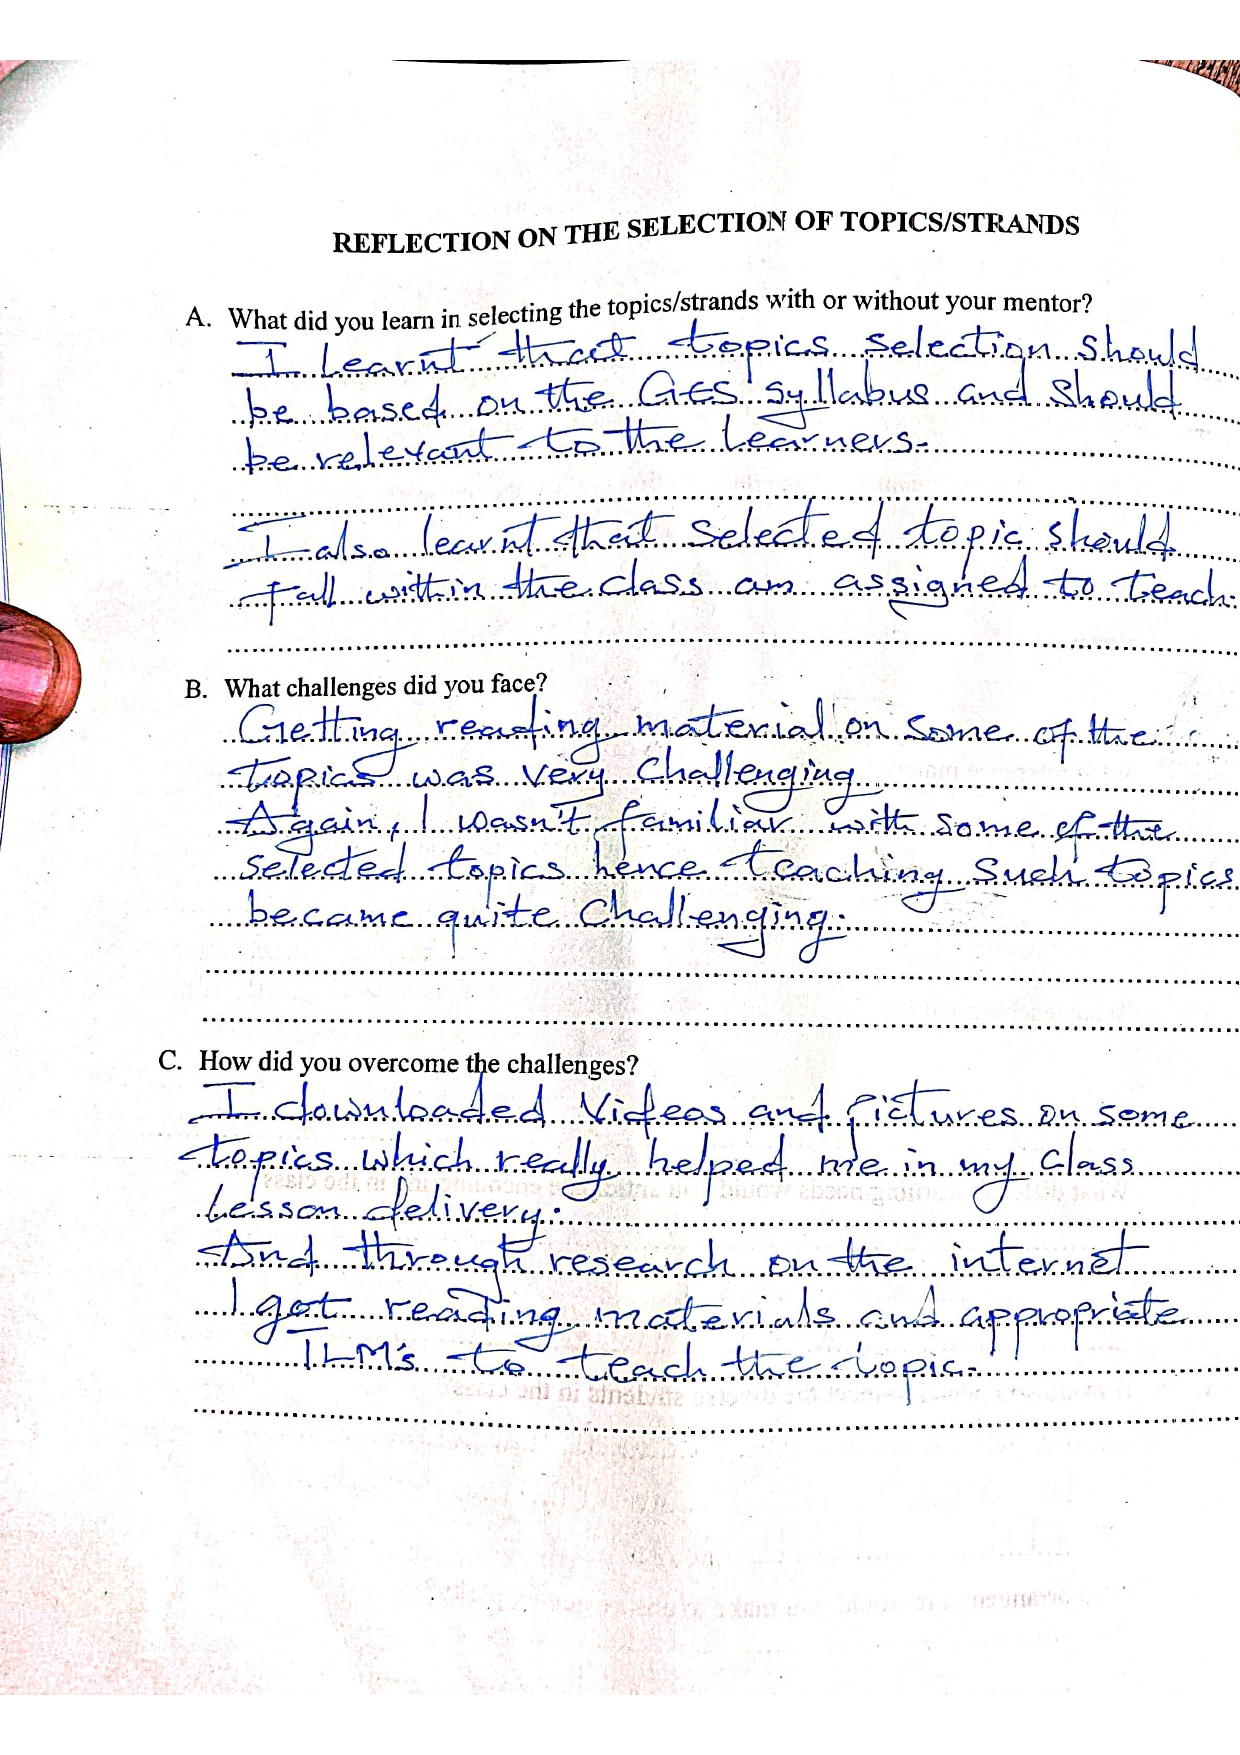 REFLECTION ON THE SELECTION OF TOPICS/STRANDS
A. What did you learn in selecting the topics/strands with or without your mentor?
I learnt that topics selection should
be based on the GES syllabus and should
be relevant to the learners.
I also learnt that selected topic should
fall within the class am assigned to teach.
B. What challenges did you face?
Getting reading material on some of the
topics was very challenging
Again, I wasn't familiar with some of the
selected topics hence teaching such topics
became quite challenging.
C. How did you overcome the challenges?
I downloaded videos and pictures on some
topics which really helped me in my class
lesson delivery.
And through research on the internet
I got reading materials and appropriate
TLM's to teach the topic.